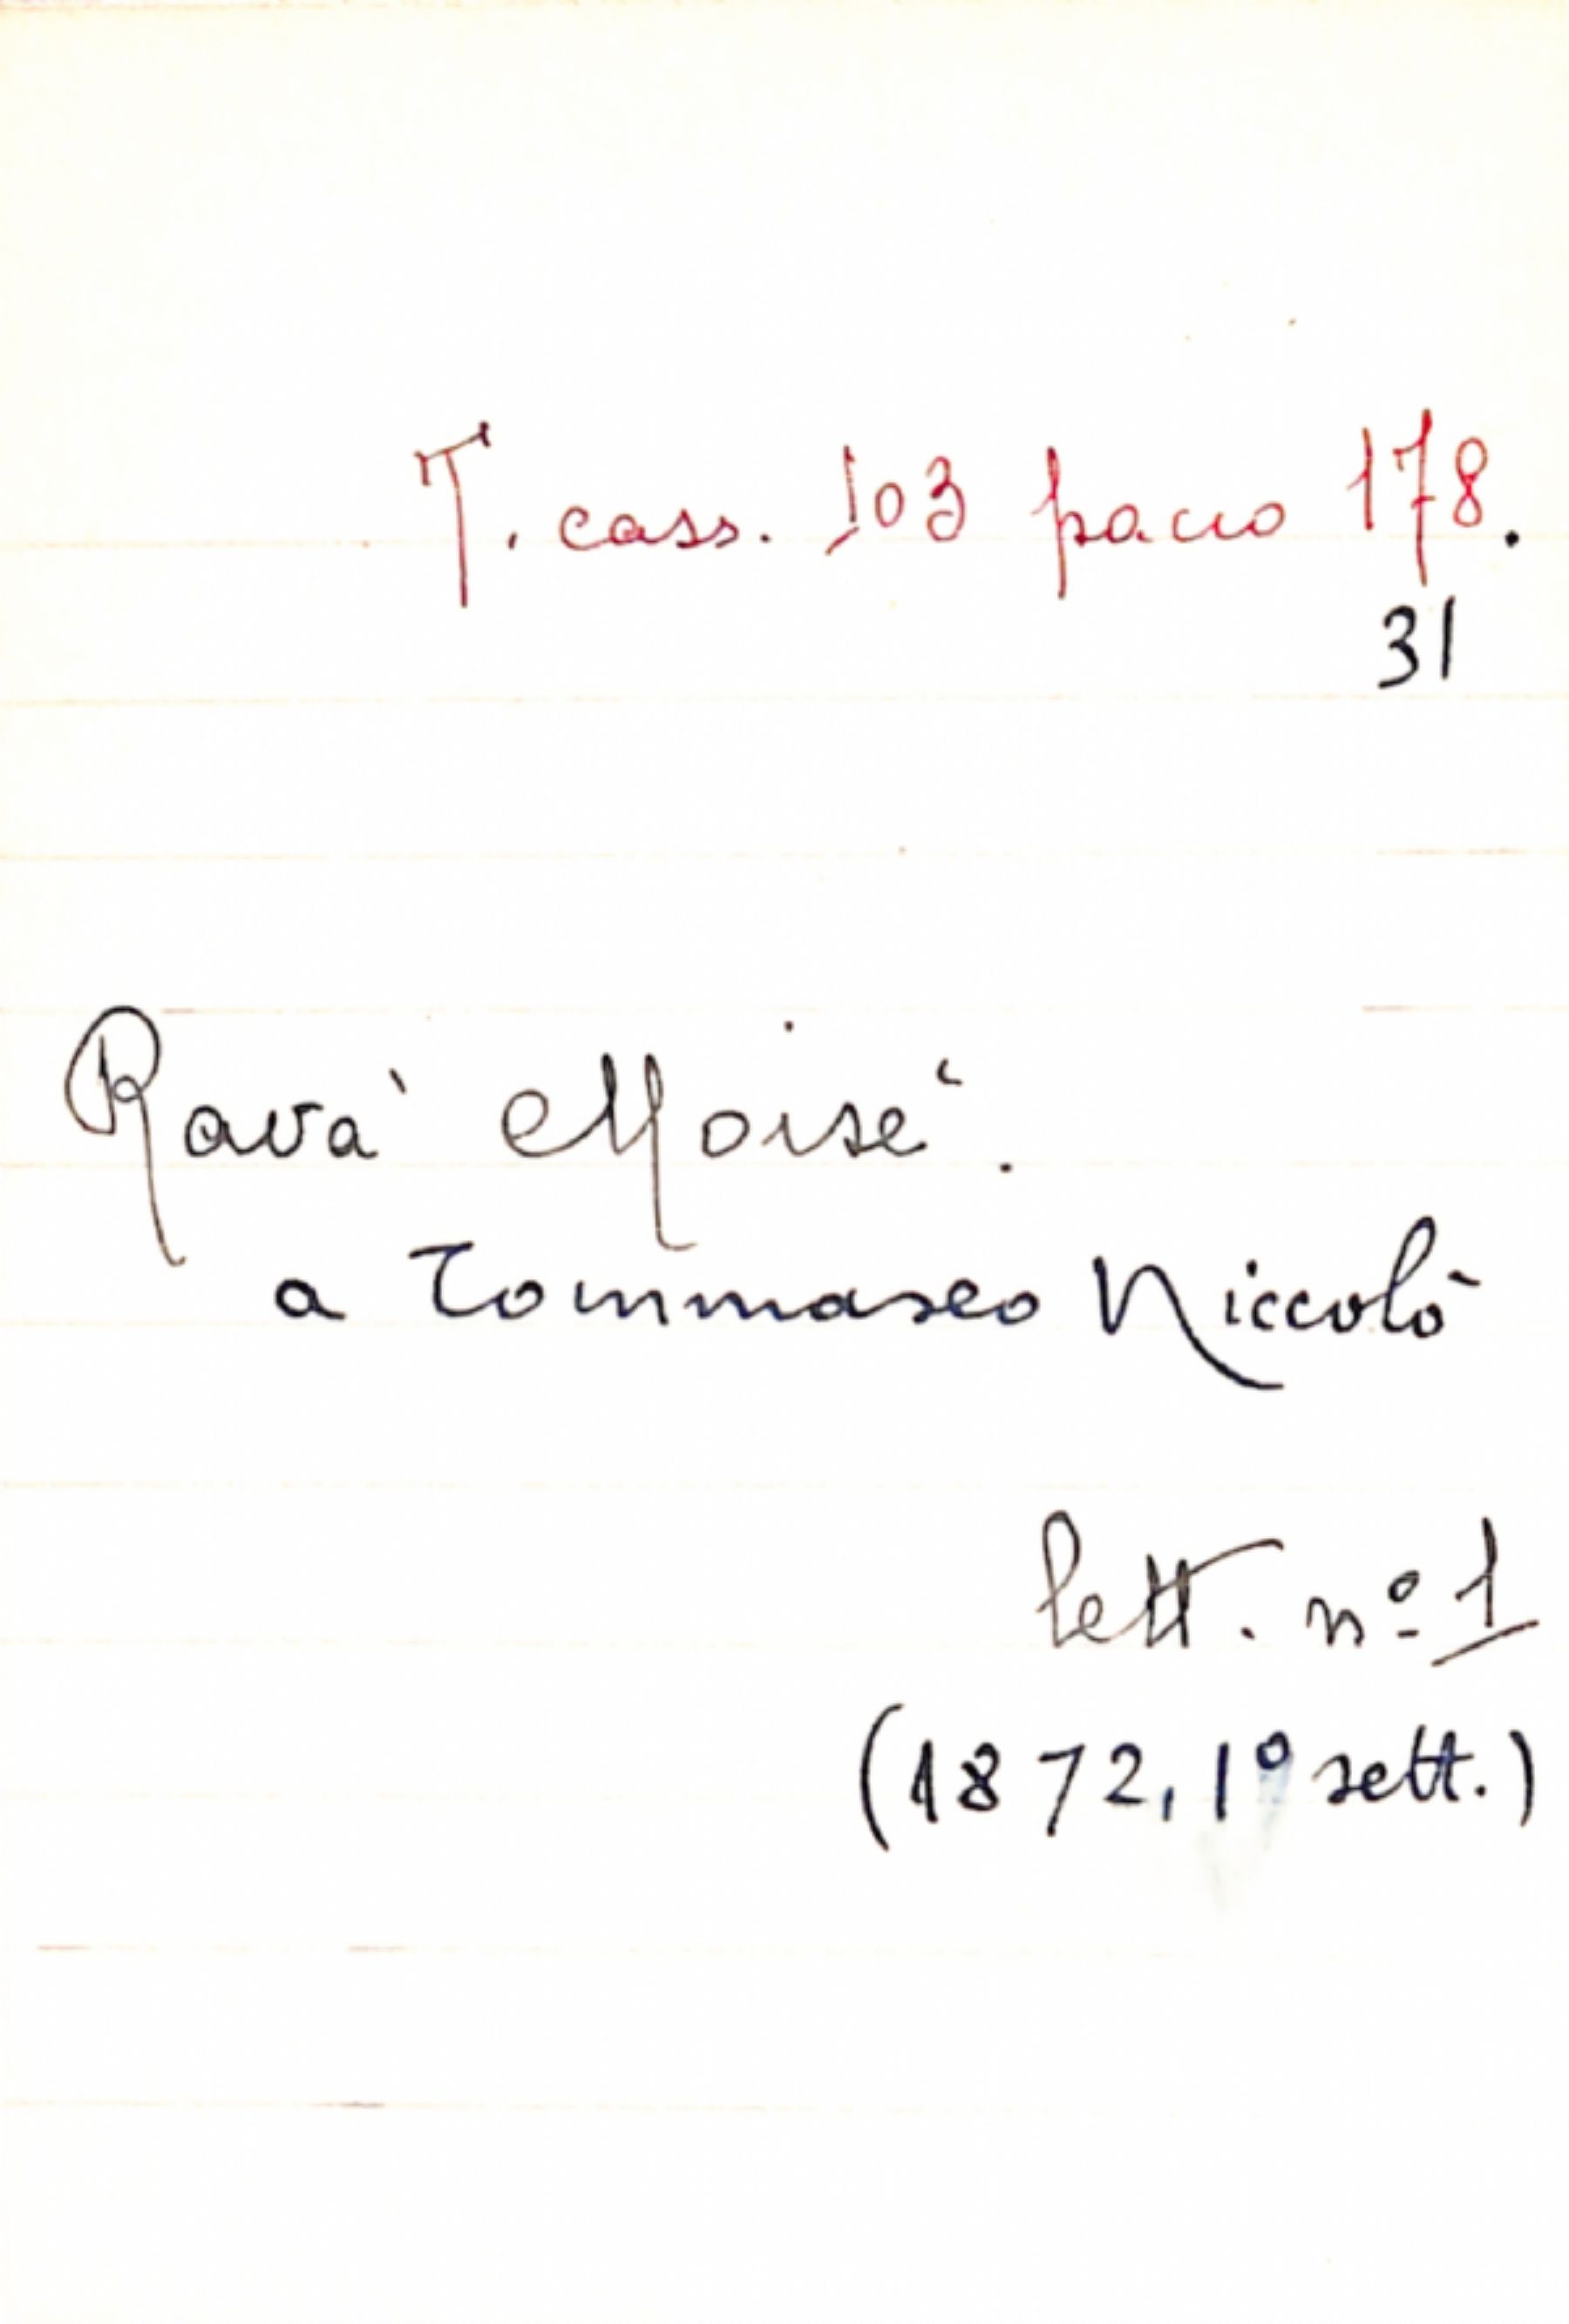 T. cass. 103 pacco 178.
31
Ravà Moisè.
a Tommaseo Niccolò
lett. nº 1
(1872, 1º sett.)